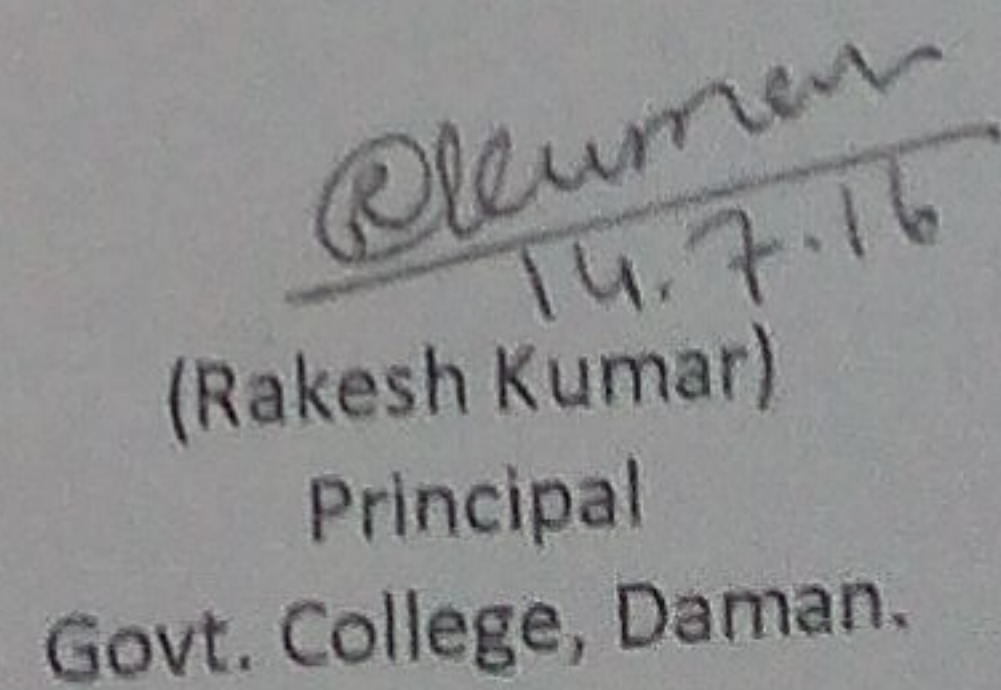 RKumar
14.7.16
(Rakesh Kumar)
Principal
Govt. College, Daman.